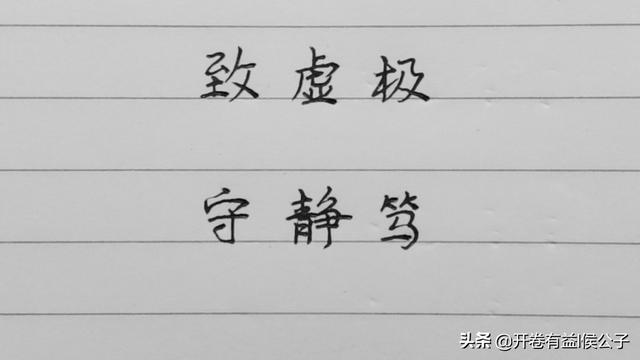 致虚极
守静笃
头条 @开卷有益|侯公子